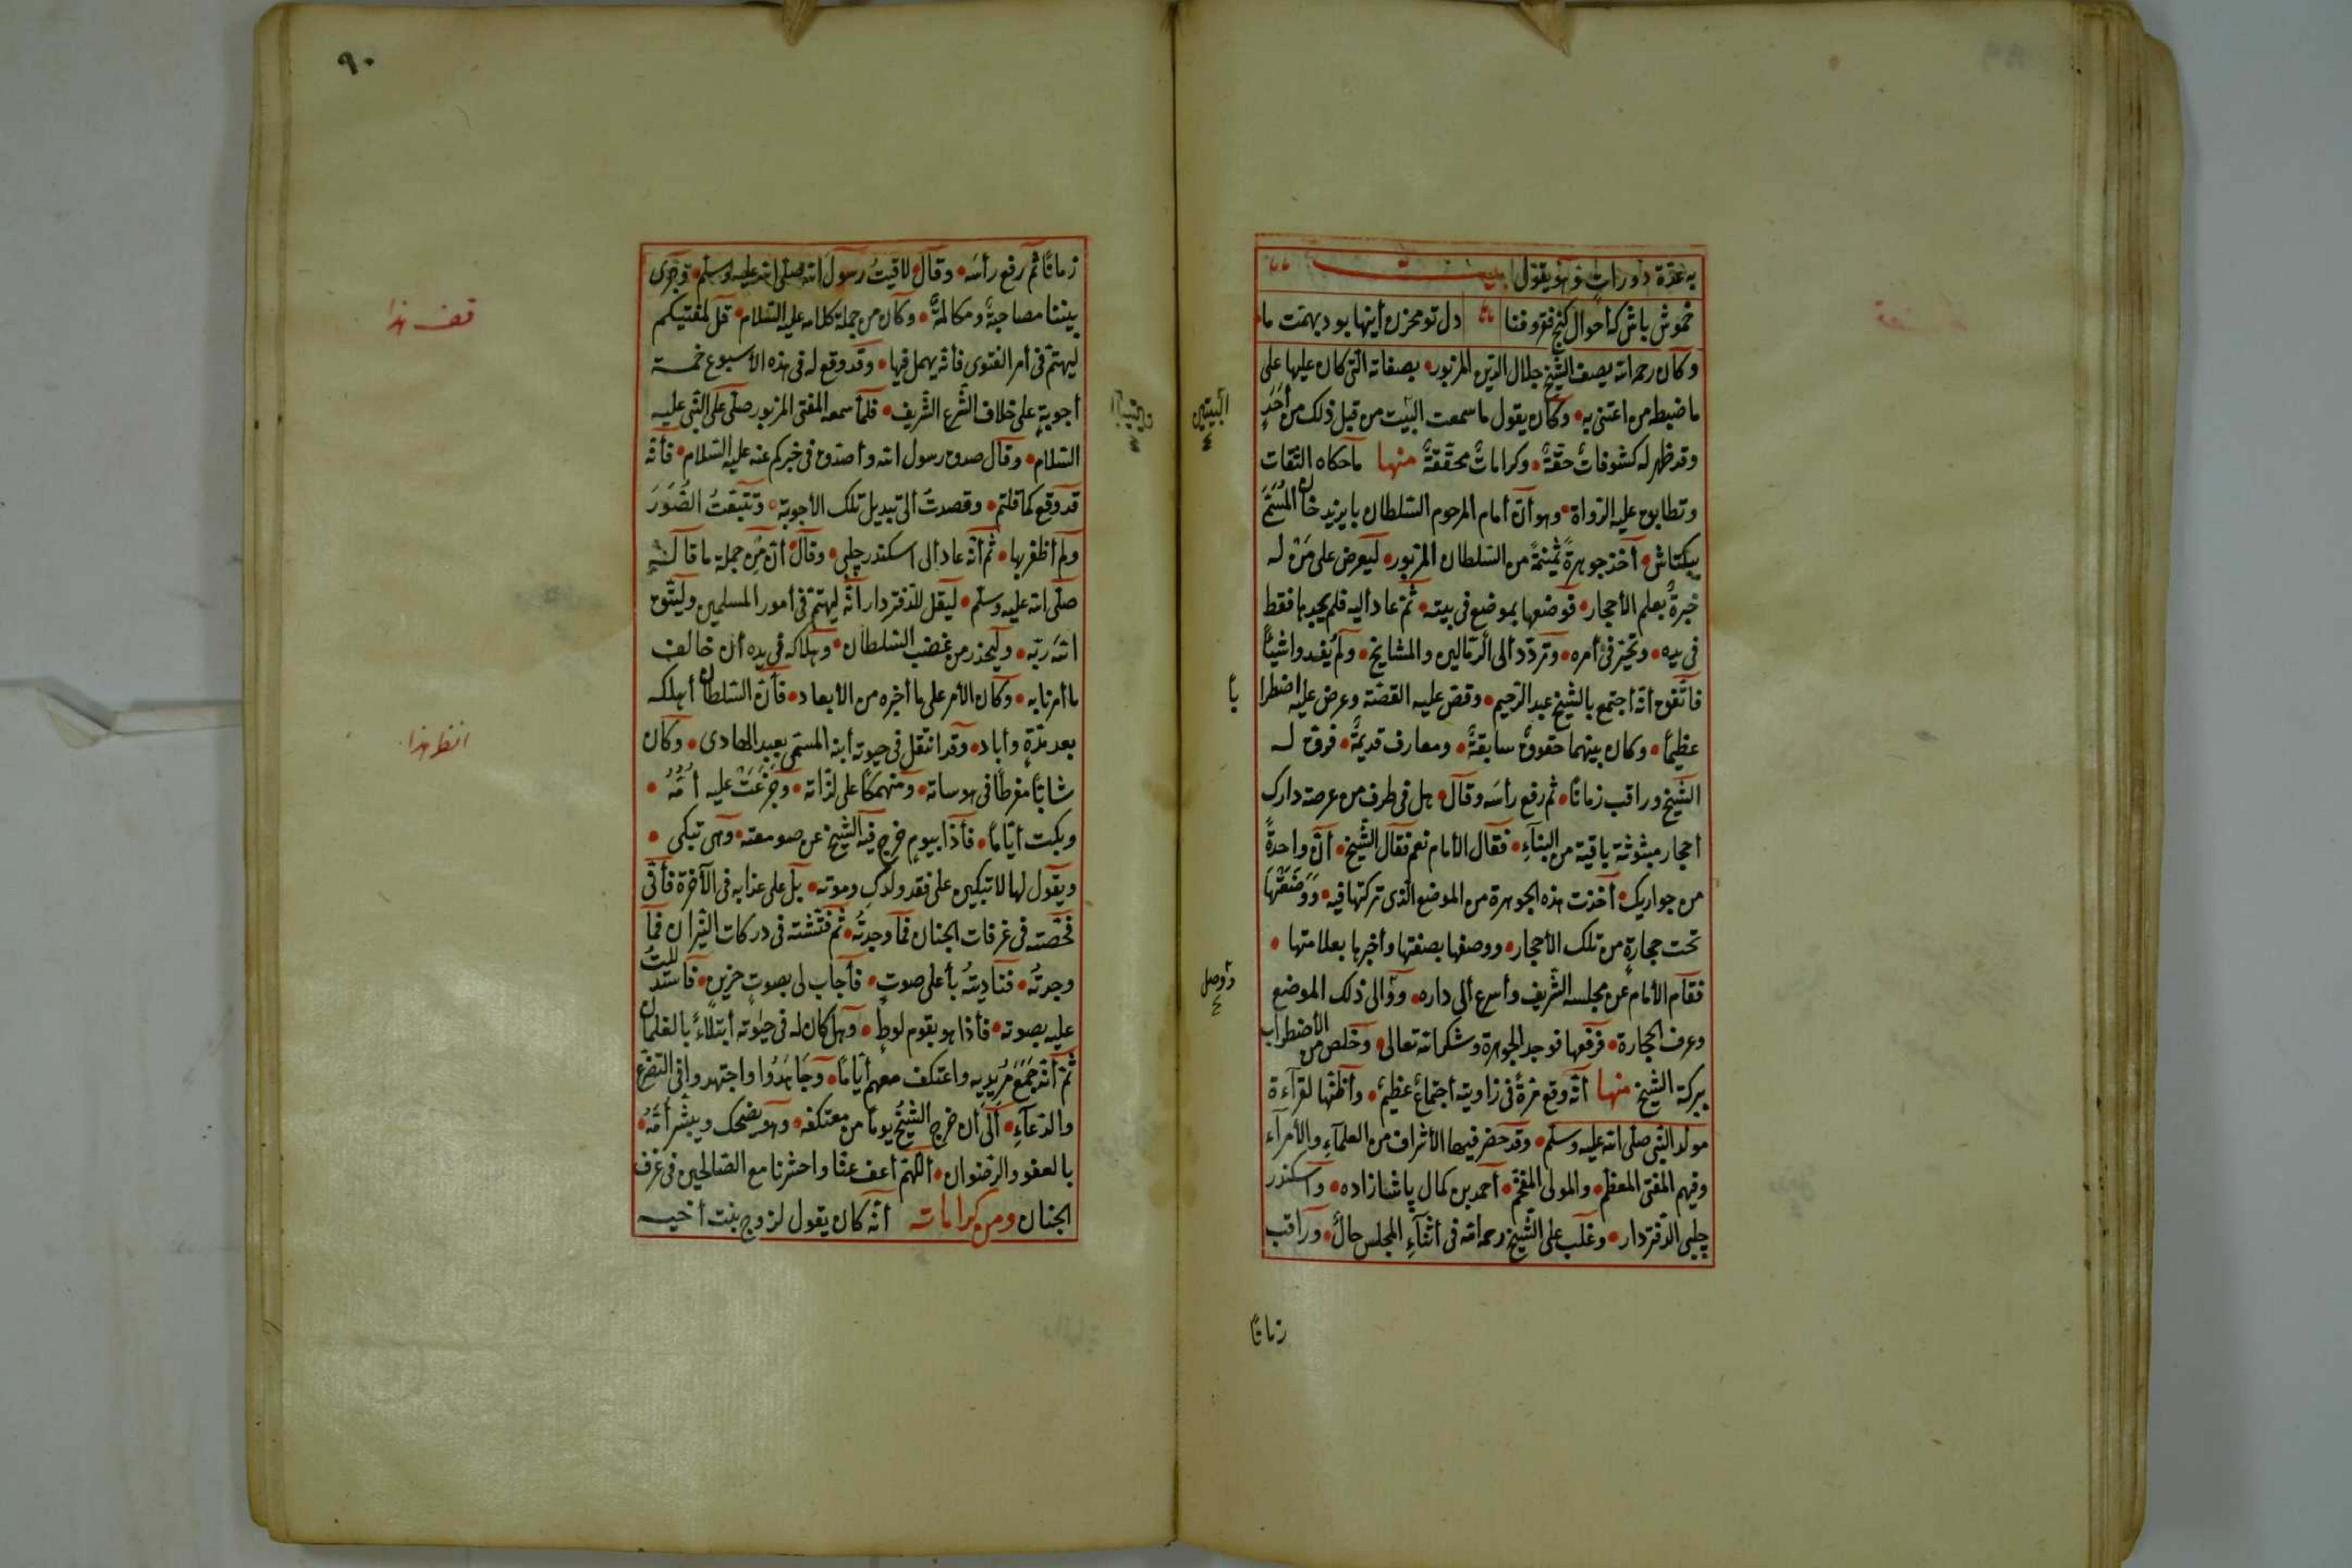 به عدة دورات وهو يقول بيت
خموش باش كه احوال كنج فقر وفنا دل تو مخزن أينها بود بهمت ما
وكان رحمه الله يصف الشيخ جلال الدين المزبور بصفاته التي كان عليها على
ما ضبطه من اعتنى به وكان يقول ما سمعت البيت من قبل ذلك من أحد
وقد ظهر له كشوفات حقة وكرامات محققة منها ما حكاه الثقات
وتطابق عليه الرواة وهو أن أمام المرحوم السلطان بايزيد خان المسمى
ببكتاش أخذ جوهرة ثمينة من السلطان المزبور ليعرض على من له
خبرة بعلم الأحجار فوضعها بموضع في بيته ثم عاد أليه فلم يجدها فقط
في يده وتحير في أمره وتردد ألى الرمالين والمشايخ ولم يفيدوا شيئا
فاتفق أنه اجتمع بالشيخ عبد الرحيم وقص عليه القصة وعرض عليه اضطرا
با
عظيما وكان بينهما حقوق سابقة ومعارف قديمة فرق له
الشيخ وراقب زمانا ثم رفع رأسه وقال هل في طرف من عرصة دارك
أحجار مبثوثة باقية من البناء فقال الأمام نعم فقال الشيخ أن واحدة
من جواريك أخذت هذه الجوهرة من الموضع الذي تركتها فيه ووضعتها
تحت حجارة من تلك الأحجار ووصفها بصفتها وأخبر بها بعلامتها
فقام الأمام عن مجلسه الشريف وأسرع ألى داره وألى ذلك الموضع
ووصل
وعرف الحجارة فرفعها فوجد الجوهرة وشكر الله تعالى وخلص من الأضطراب
ببركة الشيخ منها أنه وقع مرة في زاويته أجتماع عظيم وأظنها لقراءة
مولد النبي صلى الله عليه وسلم وقد حضر فيها الأشراف من العلماء والأمراء
وفيهم المفتي المعظم والمولى المفخم أحمد بن كمال پاشا زاده وأسكندر
چلبي الدفتردار وغلب على الشيخ رحمه الله في أثناء المجلس حال وراقب
زمانا
البيتين
٩٠
زمانا ثم رفع رأسه وقال لاقيت رسول الله صلى الله عليه وسلم وجرى
بيننا مصاحبة ومكالمة وكان من جملة كلامه عليه السلام قل لمفتيكم
قف هذا
ليهتم في أمر الفتوى فأنه يهمل فيها وقد وقع له في هذه الأسبوع خمسة
أجوبة على خلاف الشرع الشريف فلما سمعه المفتي المزبور صلى على النبي عليه
السلام وقال صدق رسول الله وأصدق في خبركم عنه عليه السلام فأنه
قد وقع كما قلتم وقصدت ألى تبديل تلك الأجوبة وتتبعت الصور
ولم أظفر بها ثم أنه عاد ألى اسكندر چلبي وقال أن من جملة ما قال
صلى الله عليه وسلم ليقل للدفتردار أنه ليهتم في أمور المسلمين وليتق
الله ربه وليحذر من غضب السلطان وهلاكه في يده أن خالف
ما أمرنا به وكان الأمر على ما أخبره من الأبعاد فأن السلطان أهلكه
بعد مدة وأباد وقد انتقل في حيوته أبنه المسمى بعبد الهادي وكان
انظر هذا
شابا مفرطا في هوساته ومنهمكا على لذاته وجزعت عليه أمه
وبكت أياما فأذا بيوم خرج فيه الشيخ عن صومعته وهي تبكي
ويقول لها لا تبكين على فقد ولدك وموته بل على عذابه في الآخرة فأني
فحصته في غرفات الجنان فما وجدته ثم فتشته في دركات النيران فما
وجدته فناديته بأعلى صوت فأجاب لي بصوت حزين فاستدللت
عليه بصوته فأذا هو بقوم لوط وهل كان له في حيوته أبتلاء بالغلمان
ثم أنه جمع مريديه واعتكف معهم أياما وجاهدوا واجتهدوا في التضرع
والدعاء ألى أن خرج الشيخ يوما من معتكفه وهو يضحك ويبشر أمه
بالعفو والرضوان أللهم أعف عنا واحشرنا مع الصالحين في غرف
الجنان ومن كراماته أنه كان يقول لزوج بنت أخيه